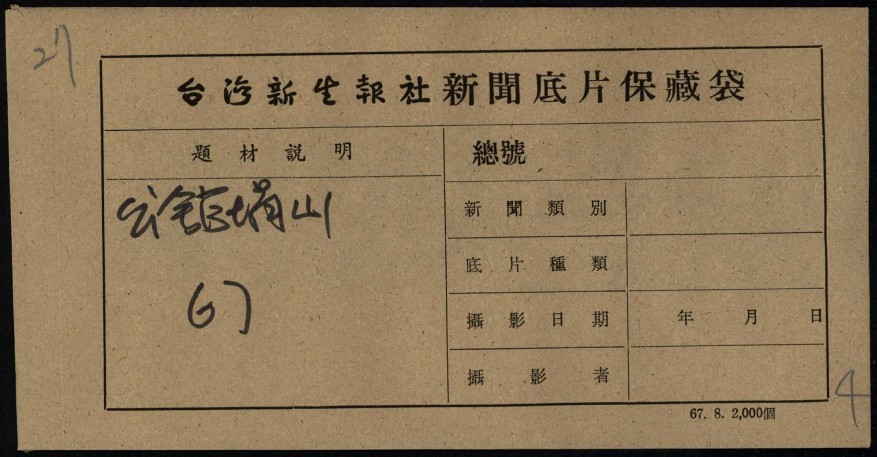 27
台灣新生報社新聞底片保藏袋
題材説明
總號
公館塌山
67
新聞類別
底片種類
攝影日期 年 月 日
攝影者
4
67. 8. 2,000個